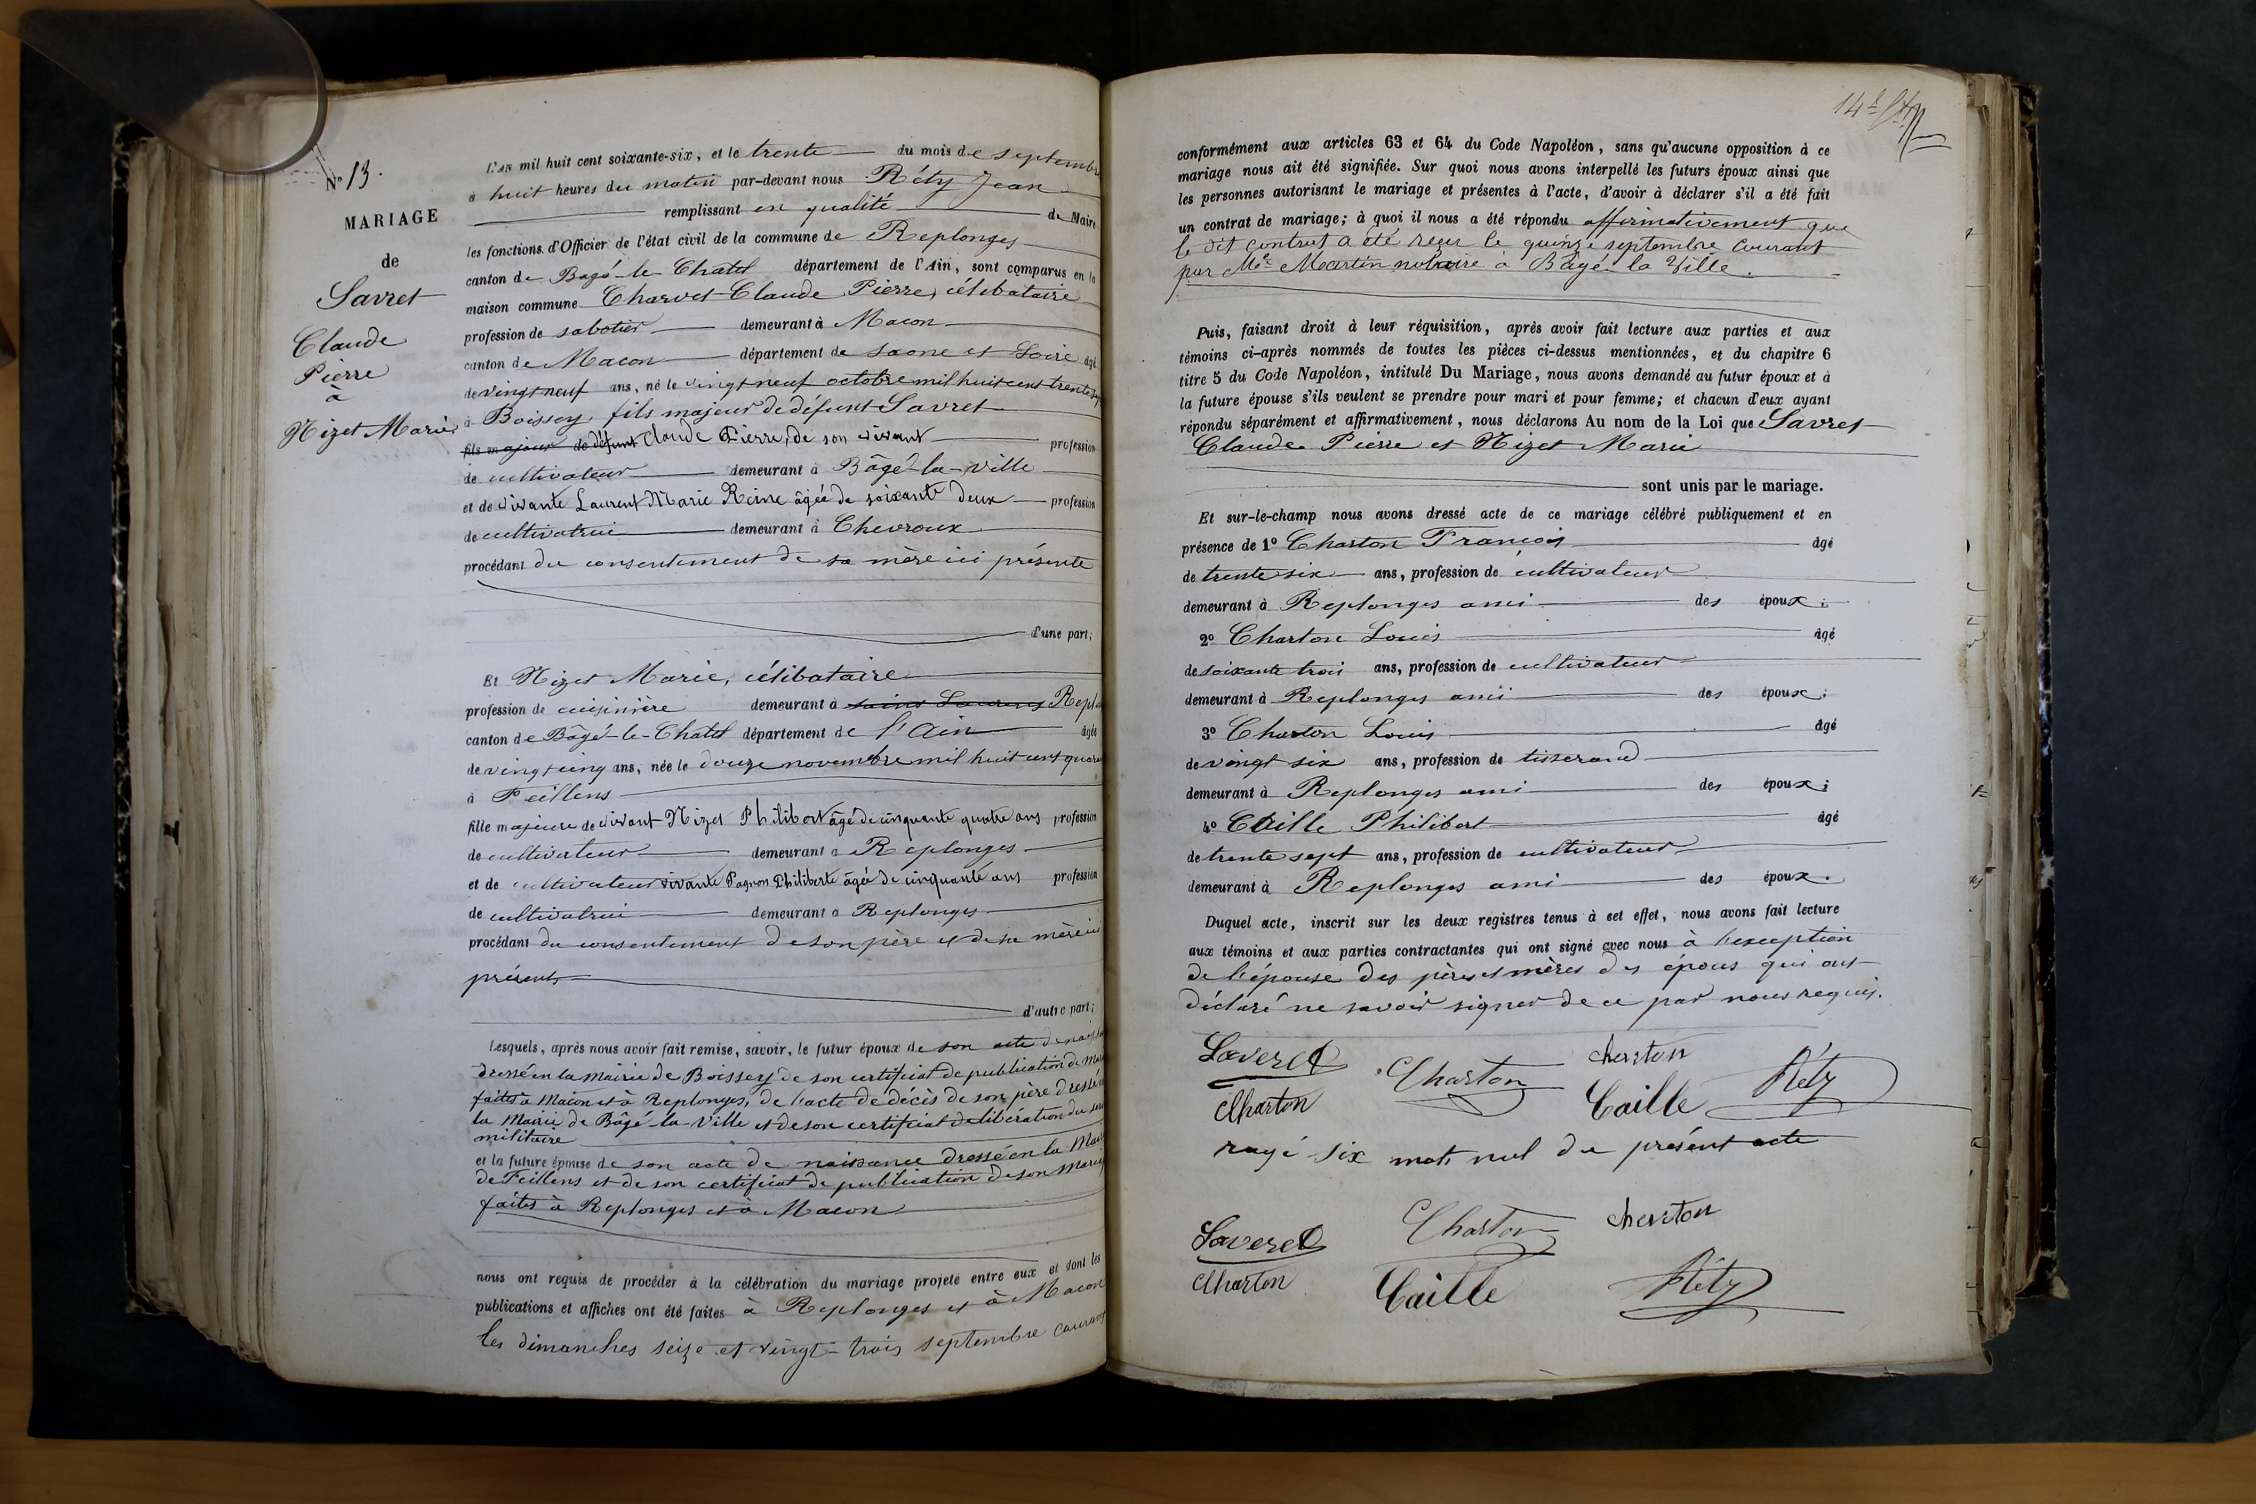 N° 13.
MARIAGE
de
Savret
Claude
Pierre
à
Nizet Marie
L'AN mil huit cent soixante-six, et le trente du mois de septembre
à huit heures du matin par-devant nous Réty Jean
remplissant en qualité de Maire
les fonctions d'Officier de l'état civil de la commune de Replonges
canton de Bagé-le-Chatel département de l'Ain, sont comparus en la
maison commune Charvet Claude Pierre, célibataire
profession de sabotier demeurant à Macon
canton de Macon département de Saone et Loire âgé
de vingt neuf ans, né le vingt neuf octobre mil huit cent trente
à Boissey, fils majeur de défunt Savret
fils majeur de défunt Claude Pierre, de son vivant profession
de cultivateur demeurant à Bâgé-la-Ville
et de vivante Laurent Marie Reine âgée de soixante deux profession
de cultivatrice demeurant à Chevroux
procédant du consentement de sa mère ici présente
d'une part;
Et Nizet Marie, célibataire
profession de cuisinière demeurant à saint Laurent Repl
canton de Bâgé-le-Chatel département de l'Ain âgée
de vingt cinq ans, née le douze novembre mil huit cent quara
à Feillens
fille majeure de vivant Nizet Philibert âgé de cinquante quatre ans profession
de cultivateur demeurant à Replonges
et de cultivateur vivante Pagnon Philiberte âgée de cinquante ans profession
de cultivatrice demeurant à Replonges
procédant du consentement de son père et de sa mère ici
présents
d'autre part;
Lesquels, après nous avoir fait remise, savoir, le futur époux de son acte de naissa
dressé en la Mairie de Boissey de son certificat de publication de Mar
faites à Macon et à Replonges, de l'acte de décès de son père dressé
la Mairie de Bâgé-la-Ville et de son certificat de libération du ser
militaire
et la future épouse de son acte de naissance dressé en la Mair
de Feillens et de son certificat de publication de son Mariag
faites à Replonges et à Macon
nous ont requis de procéder à la célébration du mariage projeté entre eux et dont les
publications et affiches ont été faites à Replonges et à Macon
les dimanches seize et vingt-trois septembre courant
conformément aux articles 63 et 64 du Code Napoléon, sans qu'aucune opposition à ce
mariage nous ait été signifiée. Sur quoi nous avons interpellé les futurs époux ainsi que
les personnes autorisant le mariage et présentes à l'acte, d'avoir à déclarer s'il a été fait
un contrat de mariage; à quoi il nous a été répondu affirmativement que
le dit contrat a été reçu le quinze septembre courant
par Me Martin notaire à Bâgé-la Ville.
Puis, faisant droit à leur réquisition, après avoir fait lecture aux parties et aux
témoins ci-après nommés de toutes les pièces ci-dessus mentionnées, et du chapitre 6
titre 5 du Code Napoléon, intitulé Du Mariage, nous avons demandé au futur époux et à
la future épouse s'ils veulent se prendre pour mari et pour femme; et chacun d'eux ayant
répondu séparément et affirmativement, nous déclarons Au nom de la Loi que Savret
Claude Pierre et Nizet Marie
sont unis par le mariage.
Et sur-le-champ nous avons dressé acte de ce mariage célébré publiquement et en
présence de 1° Charton François âgé
de trente six ans, profession de cultivateur
demeurant à Replonges ami des époux;
2° Charton Louis âgé
de soixante trois ans, profession de cultivateur
demeurant à Replonges ami des époux;
3° Charton Louis âgé
de vingt six ans, profession de tisserand
demeurant à Replonges ami des époux;
4° Caille Philibert âgé
de trente sept ans, profession de cultivateur
demeurant à Replonges ami des époux.
Duquel acte, inscrit sur les deux registres tenus à cet effet, nous avons fait lecture
aux témoins et aux parties contractantes qui ont signé avec nous à l'exception
de l'épouse des pères et mères des époux qui ont
déclaré ne savoir signer de ce par nous requis.
Saveret Charton cherton Réty
Charton Caille
rayé six mots nul du présent acte
Saveret Charton cherton
Charton Caille Réty